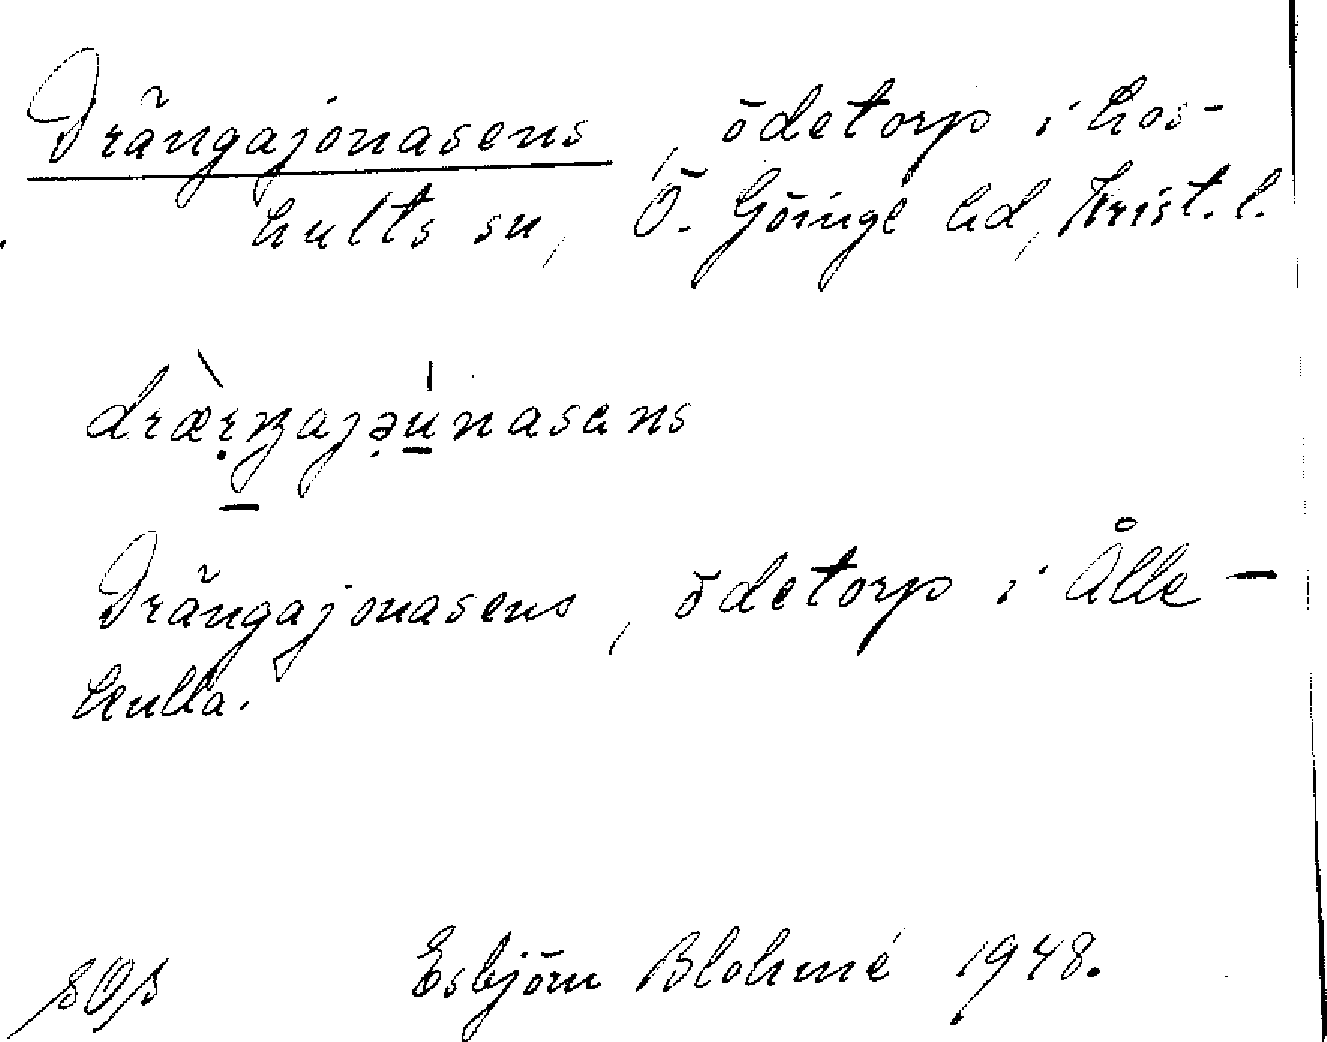 Drängajonasens, ödetorp i Los-
hults sn, Ö. Göinge hd, Krist. l.
dræ̀ŋajəúnasens
Drängajonasens, ödetorp i Ålle-
kulla.
Esbjörn Blohmé 1948.